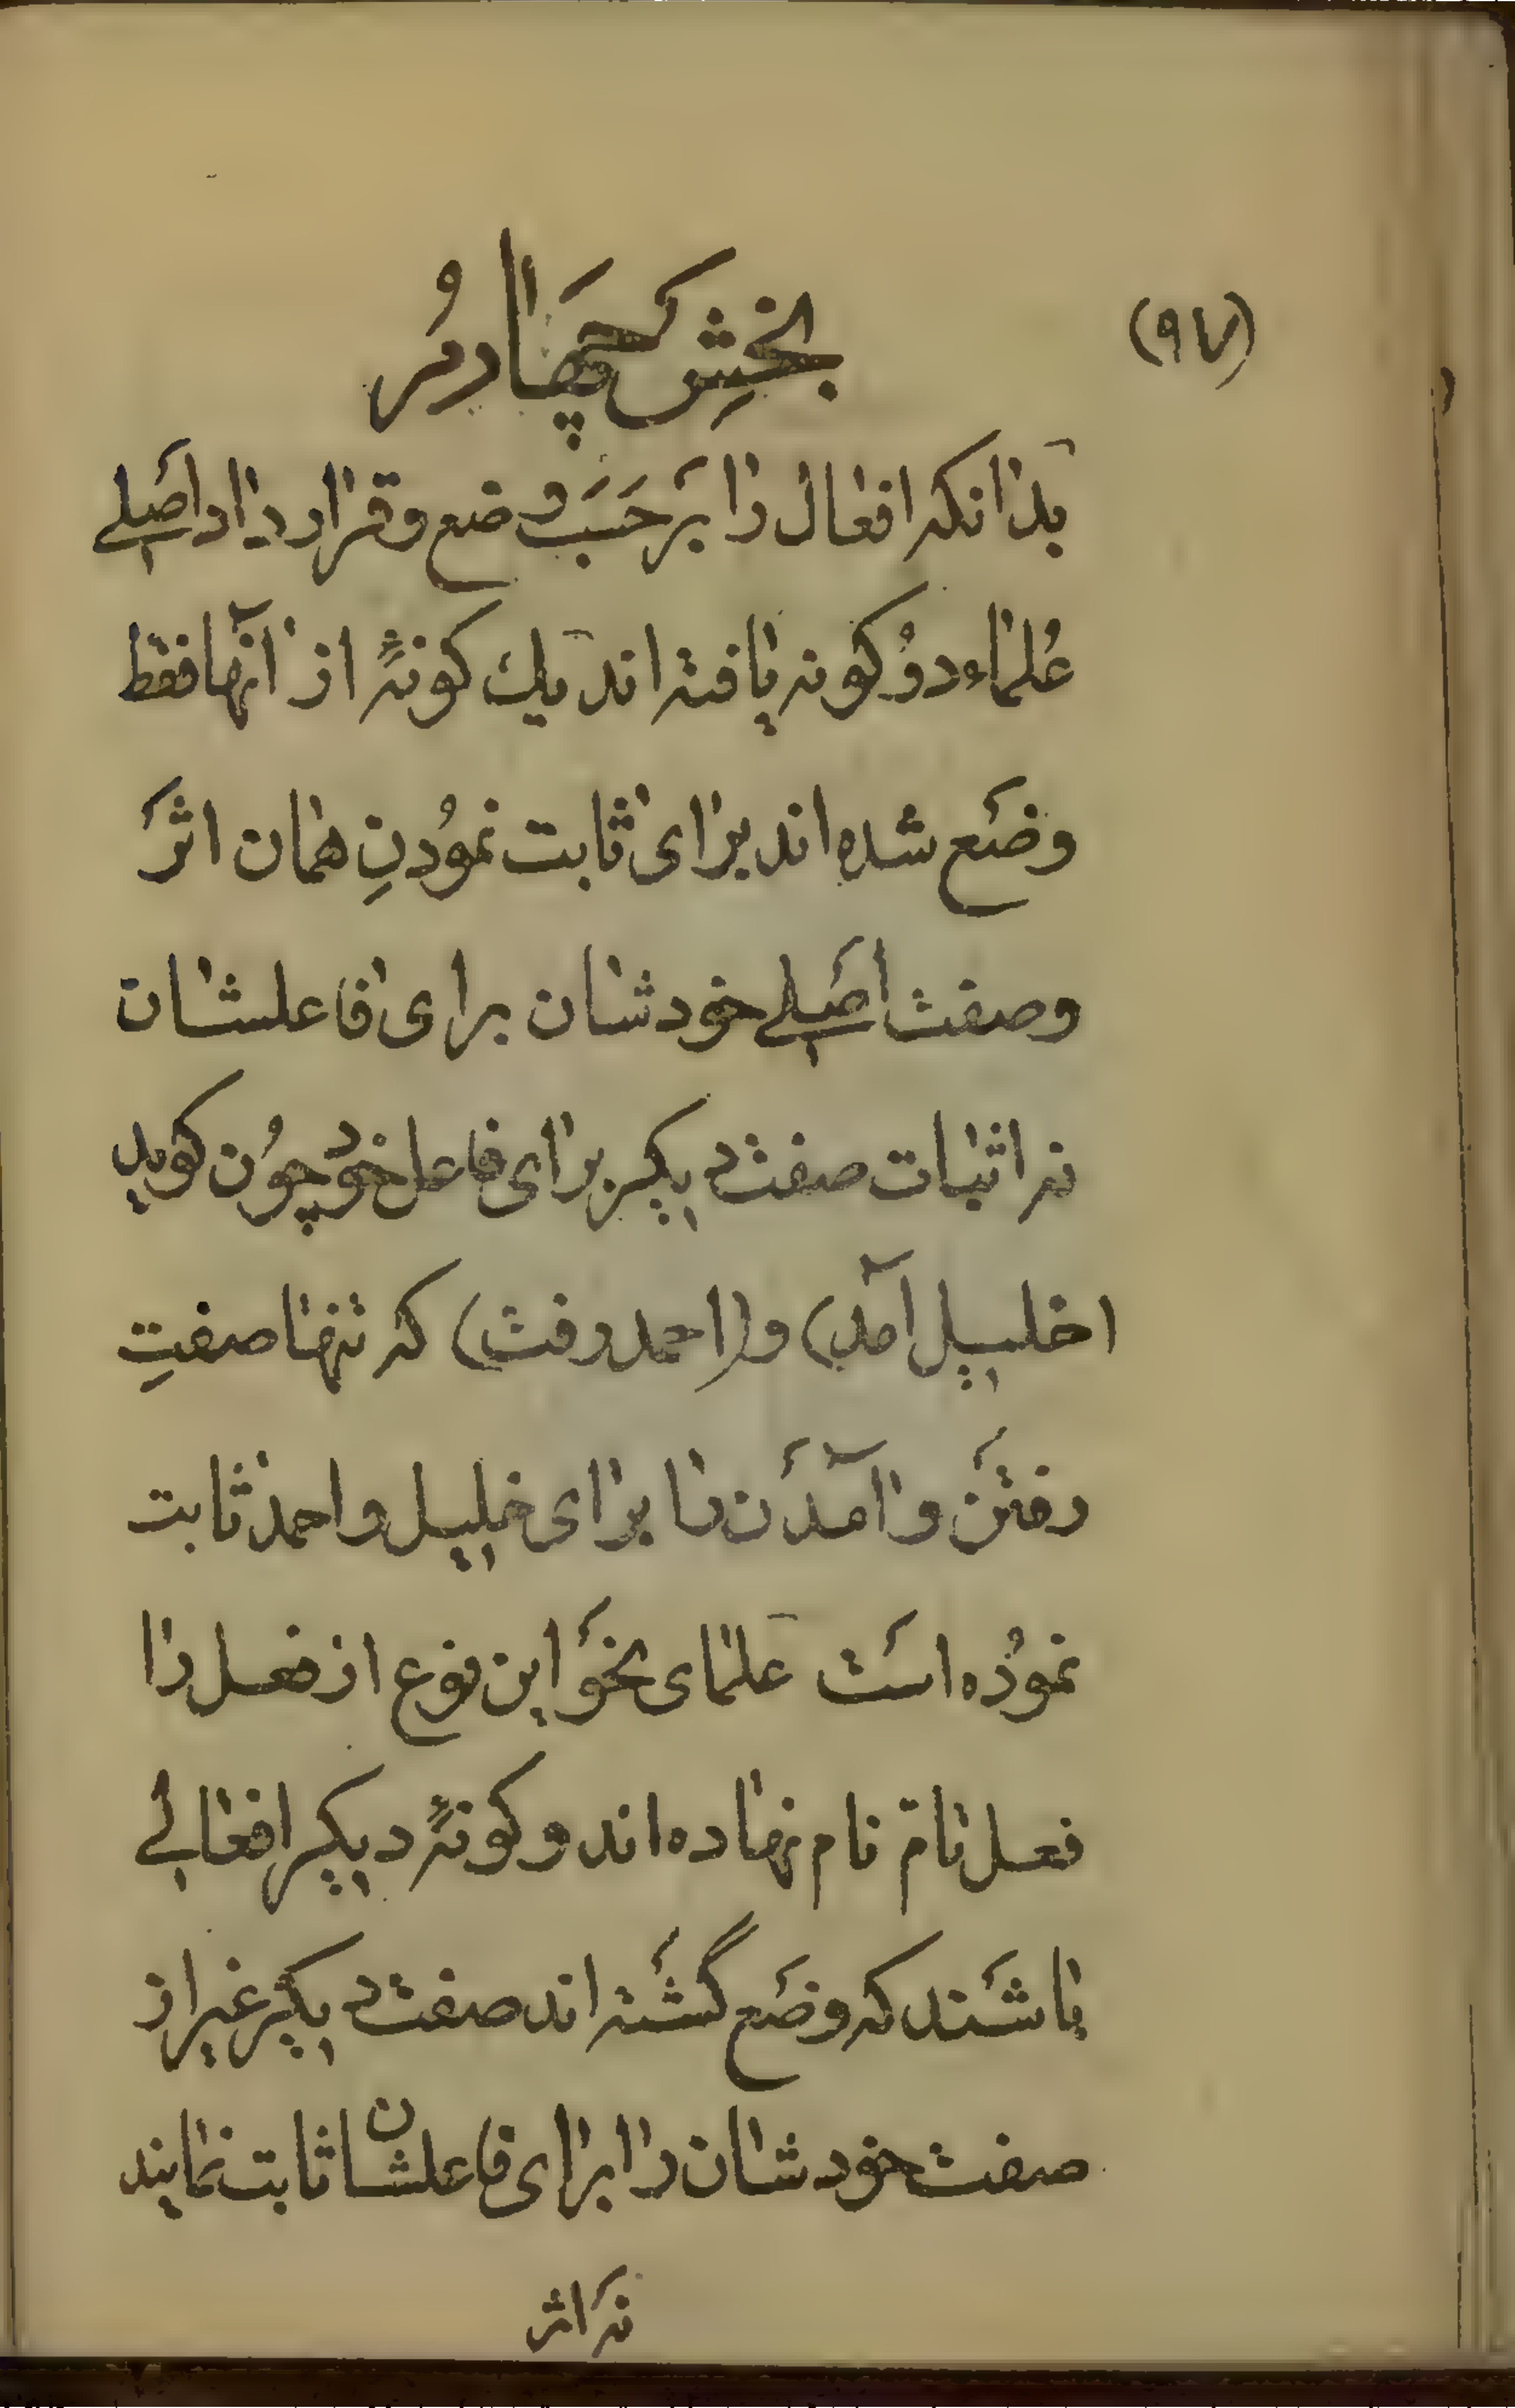 (۹۷)
بخش چهارم
بدانکه افعال را بر حَسَب وضع و قرارداد اَصلی
عُلماء دوُ کونه یافته اند یك کونهٔ از آنها فقط
وضَع شده اند برای ثابت نموُدنِ همان اثَر
وصفت اَصَلی خودشان برای فاعلشان
نه اثبات صفت دیکر برای فاعل خود چوُن کوید
(خلیل آمد) و (احمد رفت) که تنها صفتِ
رفتَن و آمَدَن را برای خلیل و احمد ثابت
نموُده است علمای نحَو این نوع از فعل را
فعل تامّ نام نهاده اند و کونهٔ دیکر افعالی
باشَند که وضَع گشَته اند صفت دیکر غیر از
صفت خودشان را برای فاعلشان ثابت نمایند
نَه اثر